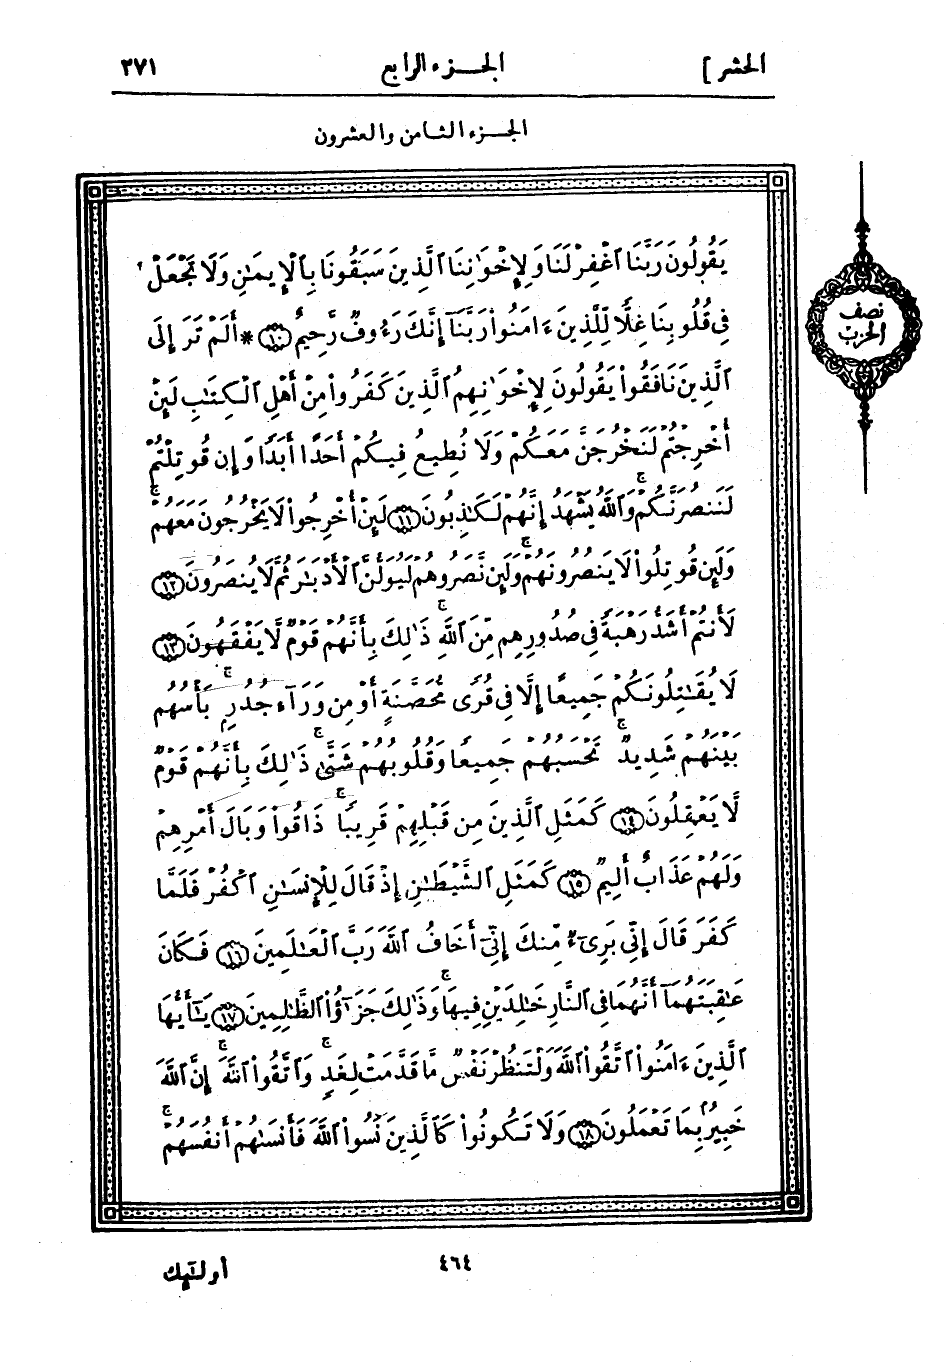 الحشر ]
الجزء الرابع
٣٧١
الجزء الثامن والعشرون
يَقُولُونَ رَبَّنَا ٱغْفِرْ لَنَا وَلِإِخْوَٰنِنَا ٱلَّذِينَ سَبَقُونَا بِٱلْإِيمَٰنِ وَلَا تَجْعَلْ
فِى قُلُوبِنَا غِلًّا لِّلَّذِينَ ءَامَنُوا۟ رَبَّنَآ إِنَّكَ رَءُوفٌ رَّحِيمٌ ١٠ * أَلَمْ تَرَ إِلَى
ٱلَّذِينَ نَافَقُوا۟ يَقُولُونَ لِإِخْوَٰنِهِمُ ٱلَّذِينَ كَفَرُوا۟ مِنْ أَهْلِ ٱلْكِتَٰبِ لَئِنْ
أُخْرِجْتُمْ لَنَخْرُجَنَّ مَعَكُمْ وَلَا نُطِيعُ فِيكُمْ أَحَدًا أَبَدًا وَإِن قُوتِلْتُمْ
لَنَنصُرَنَّكُمْ ۚ وَٱللَّهُ يَشْهَدُ إِنَّهُمْ لَكَٰذِبُونَ ١١ لَئِنْ أُخْرِجُوا۟ لَا يَخْرُجُونَ مَعَهُمْ ۚ
وَلَئِن قُوتِلُوا۟ لَا يَنصُرُونَهُمْ ۚ وَلَئِن نَّصَرُوهُمْ لَيُوَلُّنَّ ٱلْأَدْبَٰرَ ثُمَّ لَا يُنصَرُونَ ١٢
لَأَنتُمْ أَشَدُّ رَهْبَةً فِى صُدُورِهِم مِّنَ ٱللَّهِ ۚ ذَٰلِكَ بِأَنَّهُمْ قَوْمٌ لَّا يَفْقَهُونَ ١٣
لَا يُقَٰتِلُونَكُمْ جَمِيعًا إِلَّا فِى قُرًى مُّحَصَّنَةٍ أَوْ مِن وَرَآءِ جُدُرٍ ۚ بَأْسُهُم
بَيْنَهُمْ شَدِيدٌ ۚ تَحْسَبُهُمْ جَمِيعًا وَقُلُوبُهُمْ شَتَّىٰ ۚ ذَٰلِكَ بِأَنَّهُمْ قَوْمٌ
لَّا يَعْقِلُونَ ١٤ كَمَثَلِ ٱلَّذِينَ مِن قَبْلِهِمْ قَرِيبًا ۚ ذَاقُوا۟ وَبَالَ أَمْرِهِمْ
وَلَهُمْ عَذَابٌ أَلِيمٌ ١٥ كَمَثَلِ ٱلشَّيْطَٰنِ إِذْ قَالَ لِلْإِنسَٰنِ ٱكْفُرْ فَلَمَّا
كَفَرَ قَالَ إِنِّى بَرِىٓءٌ مِّنكَ إِنِّىٓ أَخَافُ ٱللَّهَ رَبَّ ٱلْعَٰلَمِينَ ١٦ فَكَانَ
عَٰقِبَتَهُمَآ أَنَّهُمَا فِى ٱلنَّارِ خَٰلِدَيْنِ فِيهَا ۚ وَذَٰلِكَ جَزَٰٓؤُا۟ ٱلظَّٰلِمِينَ ١٧ يَٰٓأَيُّهَا
ٱلَّذِينَ ءَامَنُوا۟ ٱتَّقُوا۟ ٱللَّهَ وَلْتَنظُرْ نَفْسٌ مَّا قَدَّمَتْ لِغَدٍ ۚ وَٱتَّقُوا۟ ٱللَّهَ ۚ إِنَّ ٱللَّهَ
خَبِيرٌۢ بِمَا تَعْمَلُونَ ١٨ وَلَا تَكُونُوا۟ كَٱلَّذِينَ نَسُوا۟ ٱللَّهَ فَأَنسَىٰهُمْ أَنفُسَهُمْ ۚ
نصف
الحزب
٤٦٤
أولئك